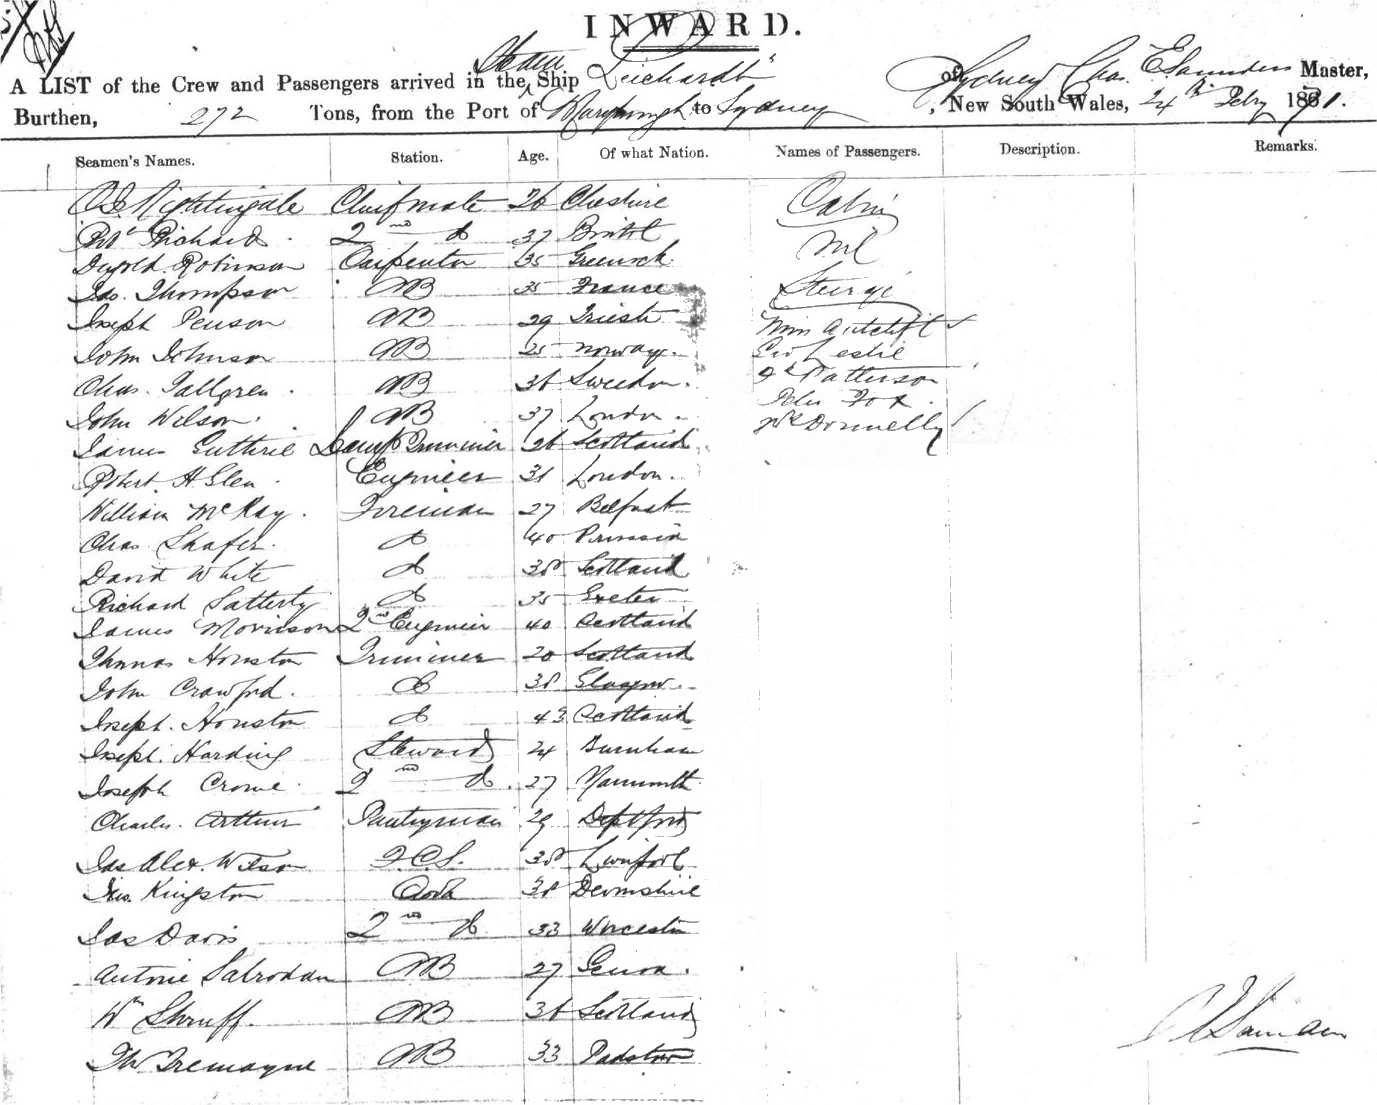 INWARD.
A LIST of the Crew and Passengers arrived in the Steam Ship "Leichardt" of Sydney Chas. E Saunders Master,
Burthen, 272 Tons, from the Port of to Sydney, New South Wales, 24th Feby 1881.
Seamen's Names. Station. Age. Of what Nation. Names of Passengers. Description. Remarks.
Nightingale Chief mate 26 Cheshire Cabin
Richards 2nd do 37 Bristol Nil
Robinson Carpenter 35 Greenock
Jas. Thompson AB 35 France Steerage
Joseph Penson AB 29 Trieste
John Johnson AB 25 Norway Geo Leslie
Chas. Tallgren AB 36 Sweden Patterson
John Wilson AB 37 London Fox
James Guthrie Lamp Trimmer 26 Scotland Donnelly
Robert H Glen Engineer 31 London
William McKay Fireman 27 Belfast
Chas Shafer do 40 Prussia
David White do 38 Scotland
Richard do 35 Exeter
James Morrison 2nd Engineer 40 Scotland
Thomas Houston Trimmer 20 Scotland
John Crawford do 38 Glasgow
Joseph Houston do 43 Scotland
Joseph Harding Steward 24 Burnham
Joseph Crowe 2nd do 27
Charles Arthur Pantryman 29 Deptford
Jas Alex. Wilson F.C.S. 38 Liverpool
Kingston Cook 38 Devonshire
Jas Davis 2nd do 33 Worcester
Antonie AB 27 Genoa
Wm Shruff AB 36 Scotland
Tremayne AB 33 Padstow